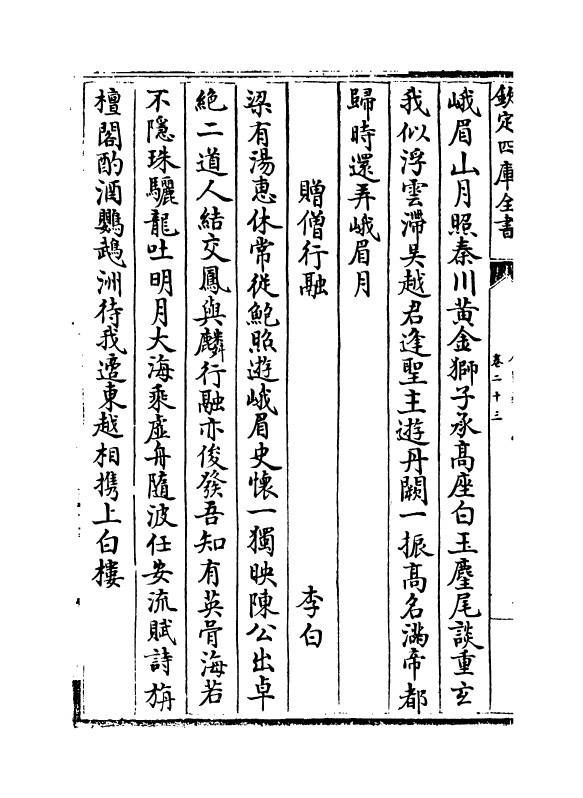 欽定四庫全書
卷二十三
峨眉山月照秦川黄金獅子承髙座白玉麈尾談重玄
我似浮雲滯吳越君逢聖主遊丹闕一振髙名滿帝都
歸時還弄峨眉月
贈僧行融
李白
梁有湯惠休常從鮑照遊峨眉史懷一獨映陳公出卓
絶二道人結交鳳與麟行融亦俊發吾知有英骨海若
不隱珠驪龍吐明月大海乘虛舟隨波任安流賦詩旃
檀閣酌酒鸚鵡洲待我遷東越相携上白樓